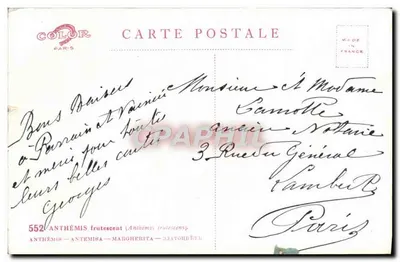 COLOR
PARIS
CARTE POSTALE
MADE
IN
FRANCE
Bons Baisers
à Parrain et Naninée
et merci pour toutes
leurs belles cartes
Georges
Monsieur & Madame
Lamotte
ancien Notaire
3 Rue du Général
Lambert
Paris
552 ANTHÉMIS frutescent
ANTHÉMIS — ANTEMISA — MARGHERITA